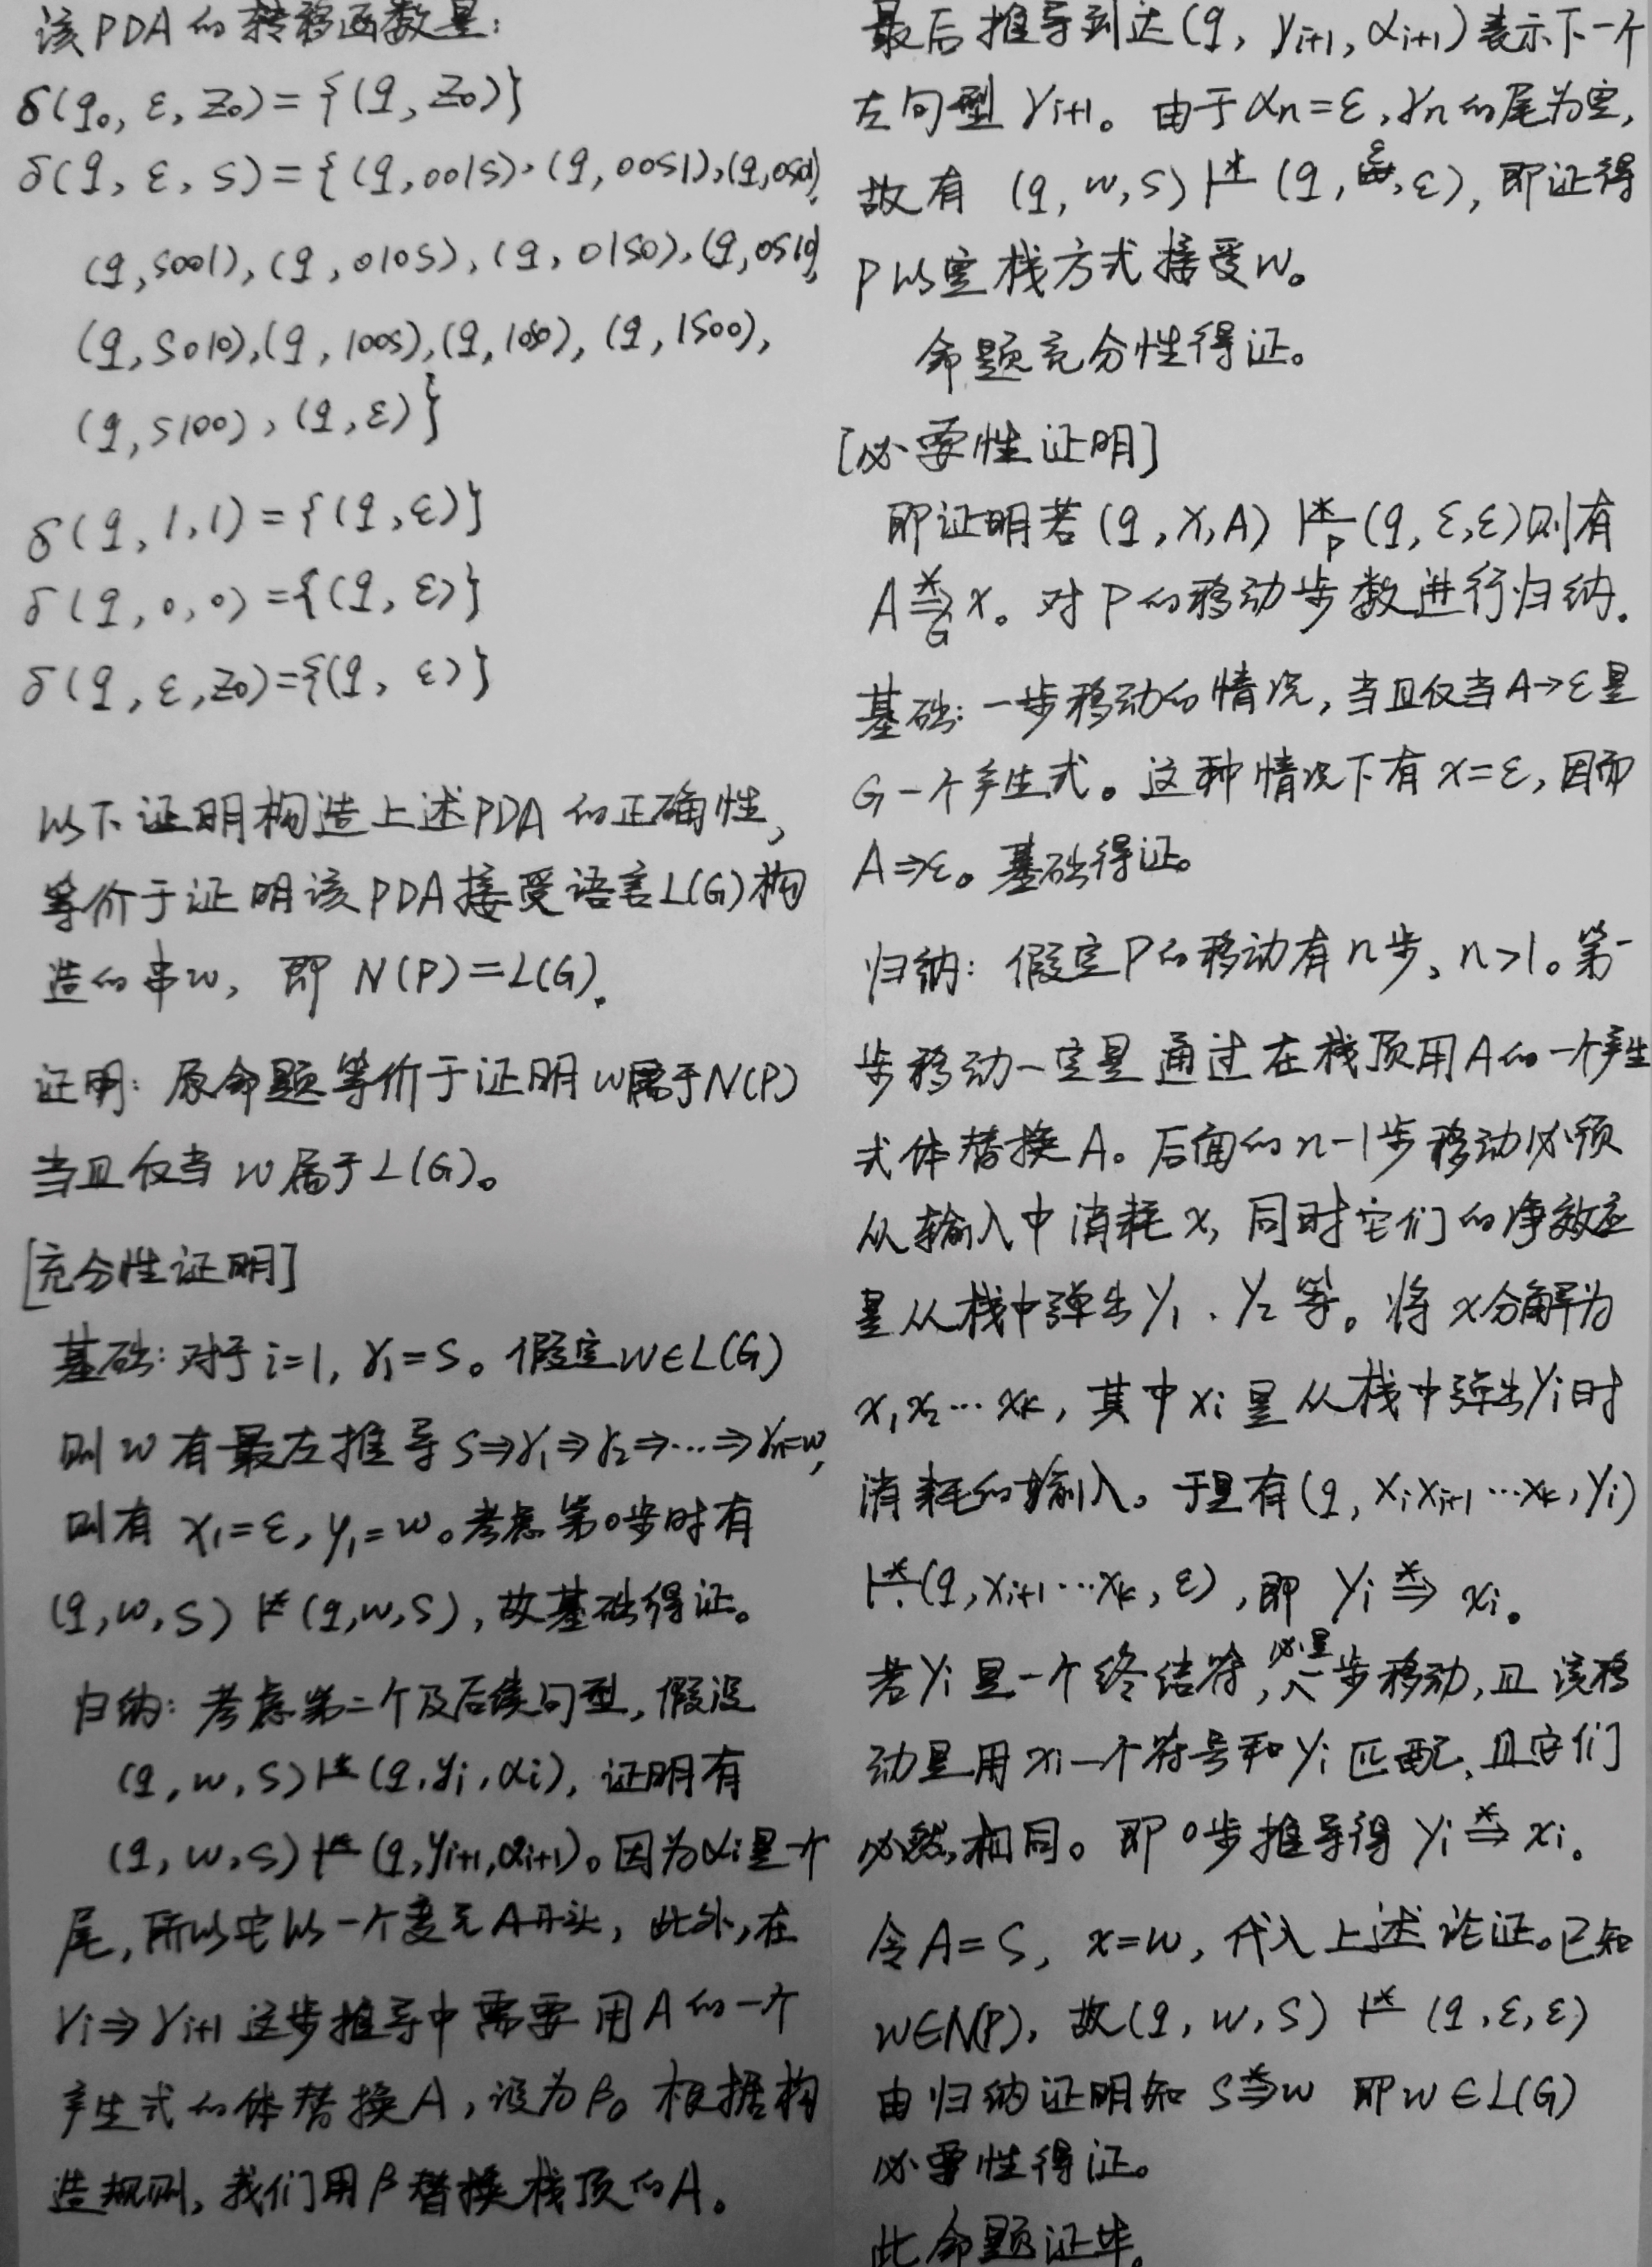 该PDA的转移函数是:
δ(q₀, ε, Z₀) = {(q, Z₀)}
δ(q, ε, S) = {(q, 001S), (q, 00S1), (q, 0S01),
(q, S001), (q, 010S), (q, 01S0), (q, 0S10),
(q, S010), (q, 100S), (q, 10S0), (q, 1S00),
(q, S100), (q, ε)}
δ(q, 1, 1) = {(q, ε)}
δ(q, 0, 0) = {(q, ε)}
δ(q, ε, Z₀) = {(q, ε)}
以下证明构造上述PDA的正确性,
等价于证明该PDA接受语言L(G)构
造的串w, 即 N(P)=L(G).
证明: 原命题等价于证明w属于N(P)
当且仅当 w属于L(G)。
[充分性证明]
基础: 对于i=1, γ₁=S。假定w∈L(G)
则w有最左推导S⇒γ₁⇒γ₂⇒…⇒γₙ=w,
则有 x₁=ε, y₁=w。考虑第0步时有
(q, w, S) ⊢* (q, w, S), 故基础得证。
归纳: 考虑第二个及后续句型, 假设
(q, w, S) ⊢* (q, yᵢ, αᵢ), 证明有
(q, w, S) ⊢* (q, yᵢ₊₁, αᵢ₊₁)。因为αᵢ是个
尾, 所以它以一个变元A开头, 此外, 在
γᵢ⇒γᵢ₊₁ 这步推导中需要用A的一个
产生式的体替换A, 设为β。根据构
造规则, 我们用β替换栈顶的A。
最后推导到达(q, yᵢ₊₁, αᵢ₊₁)表示下一个
左句型γᵢ₊₁。由于αₙ=ε, γₙ的尾为空,
故有 (q, w, S) ⊢* (q, ε, ε), 即证得
P以空栈方式接受w。
命题充分性得证。
[必要性证明]
即证明若(q, x, A) ⊢*ₚ (q, ε, ε)则有
A ⇒*_G x。对P的移动步数进行归纳.
基础: 一步移动的情况, 当且仅当A→ε是
G一个产生式。这种情况下有x=ε, 因而
A⇒ε。基础得证。
归纳: 假定P的移动有n步, n>1。第一
步移动一定是通过在栈顶用A的一个产生
式体替换A。后面的n-1步移动必须
从输入中消耗x, 同时它们的净效应
是从栈中弹出Y₁、Y₂等。将x分解为
x₁x₂…xₖ, 其中xᵢ是从栈中弹出Yᵢ时
消耗的输入。于是有(q, xᵢxᵢ₊₁…xₖ, Yᵢ)
⊢*(q, xᵢ₊₁…xₖ, ε), 即 Yᵢ ⇒* xᵢ。
若Yᵢ是一个终结符, 必是一步移动, 且该移
动是用xᵢ一个符号和Yᵢ匹配, 且它们
必然相同。即0步推导得 Yᵢ ⇒* xᵢ。
令A=S, x=w, 代入上述论证。已知
w∈N(P), 故(q, w, S) ⊢* (q, ε, ε)
由归纳证明知 S⇒*w 即w∈L(G)
必要性得证。
此命题证毕。